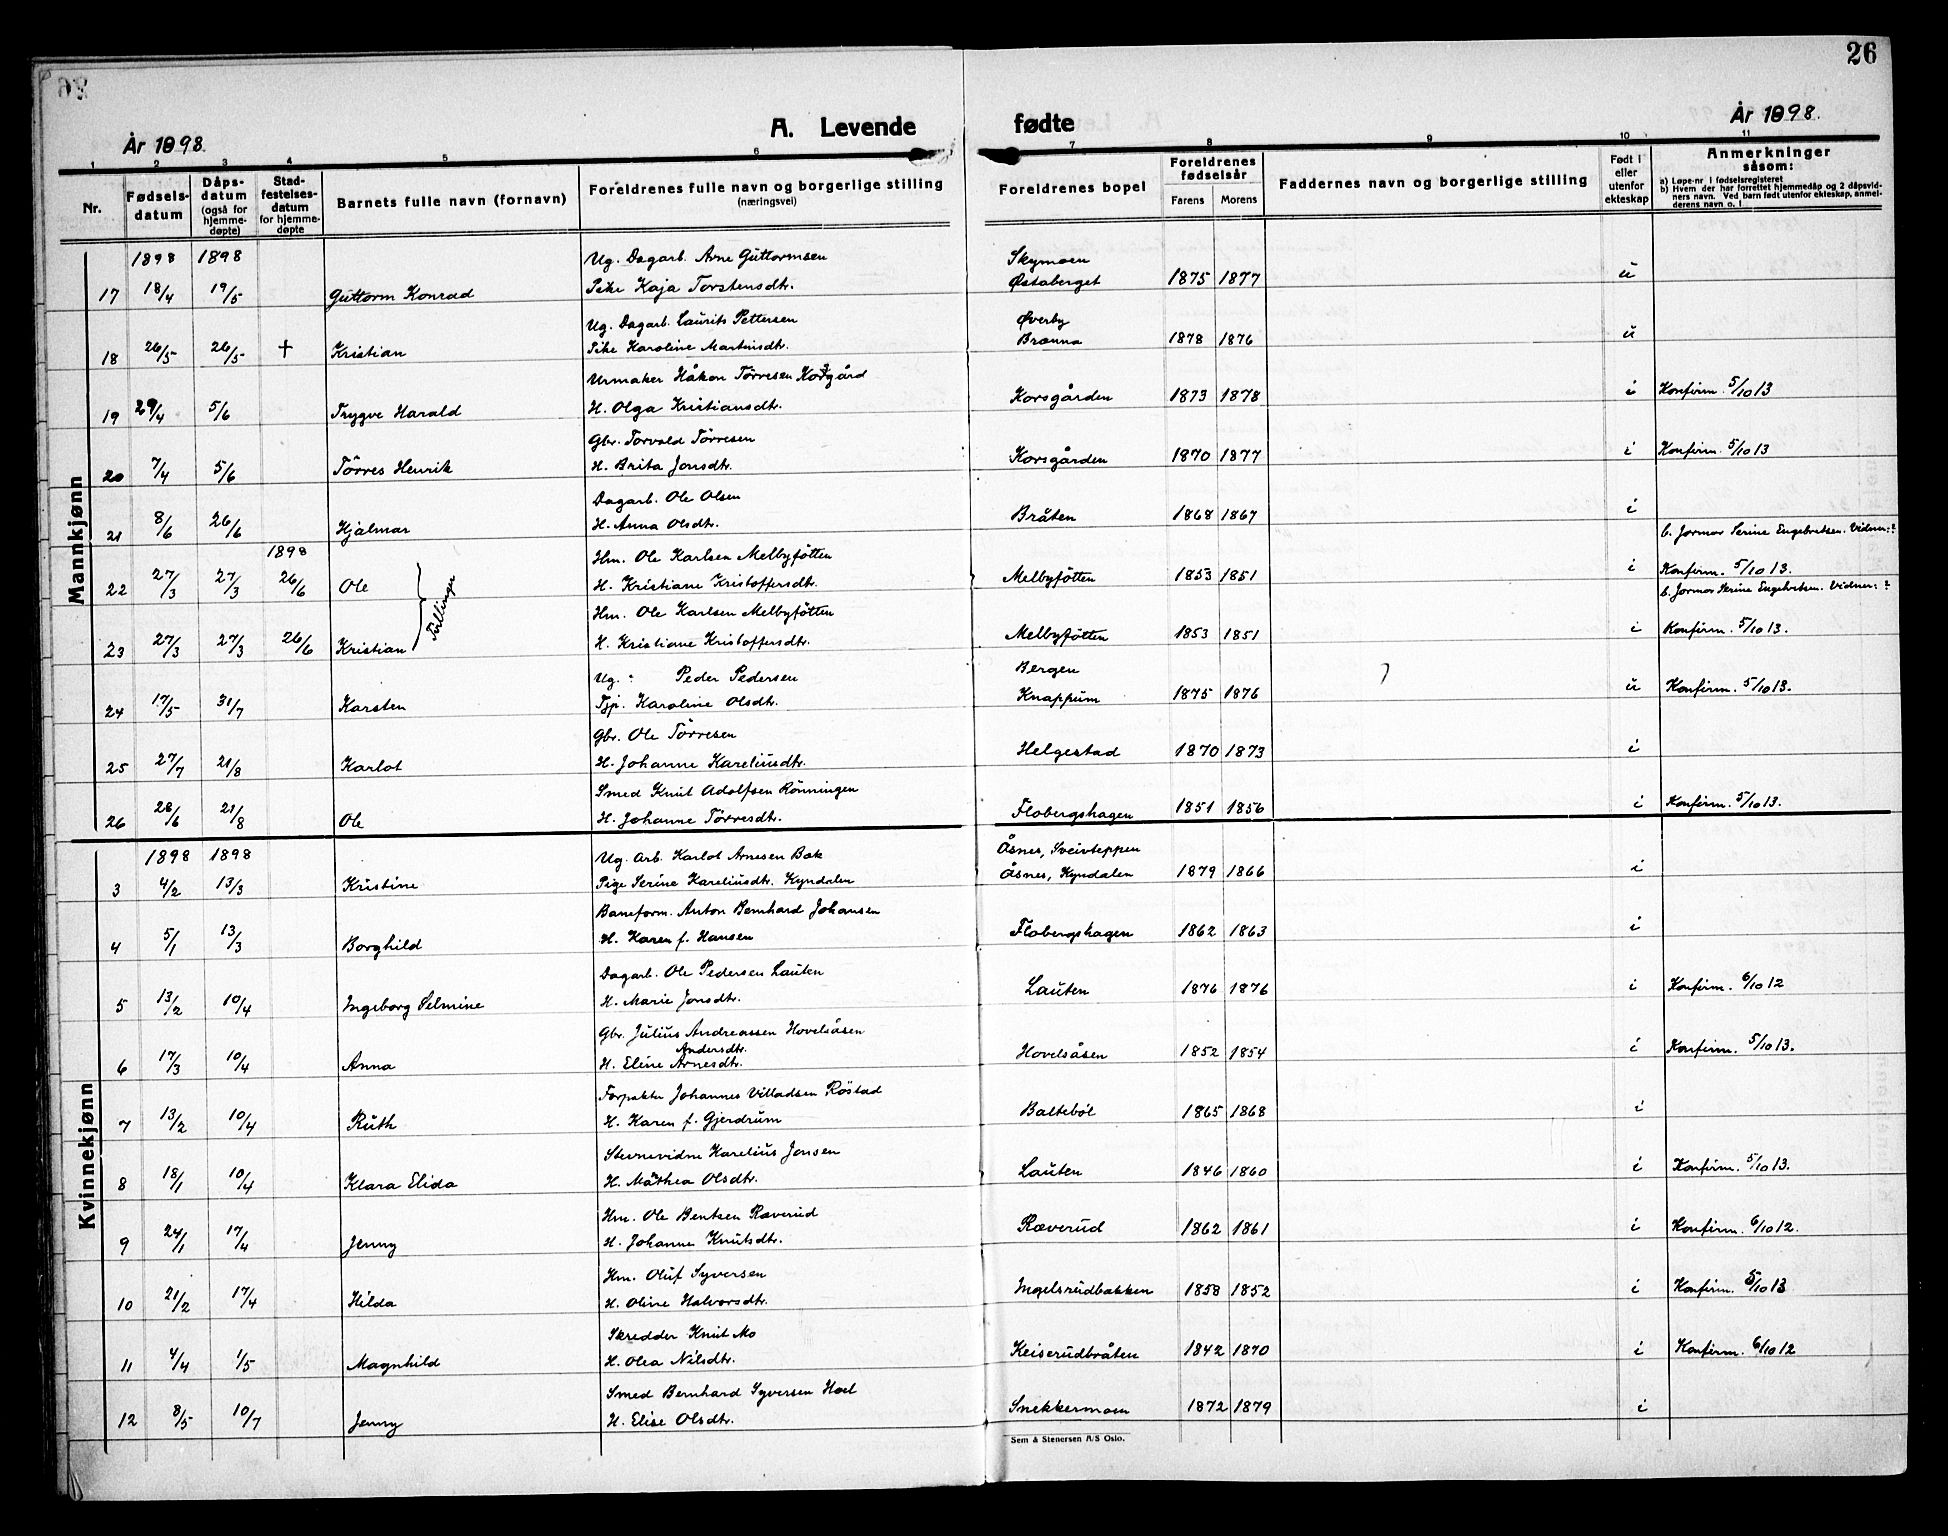 26
År 1898.
A. Levende
fødte
År 1898.
1 2 3 4 5 6 7 8 9 10 11
Nr.
Fødsels-
datum
Dåps-
datum
(også for
hjemme-
døpte)
Stad-
festelses-
datum
for hjemme-
døpte
Barnets fulle navn (fornavn)
Foreldrenes fulle navn og borgerlige stilling
(næringsvei)
Foreldrenes bopel
Foreldrenes
fødselsår
Farens Morens
Faddernes navn og borgerlige stilling
Født i
eller
utenfor
ekteskap
Anmerkninger
såsom:
a) Løpe-nr i fødselsregisteret
b) Hvem der har forrettet hjemmedåp og 2 dåpsvid-
ners navn. Ved barn født utenfor ekteskap, anmel-
derens navn o. l
Mannkjønn
1898 1898 Ug. Dagarb. Arne Guttormsen Skymoen
17 18/4 19/5 Guttorm Konrad Pike Kaja Torstensdtr. Østaberget 1875 1877 u
Ug. Dagarb. Laurits Pettersen Øverby
18 26/5 26/5 † Kristian Pike Karoline Martinsdtr. Brænna 1878 1876 u
Urmaker Håkon Törresen Korsgård
19 29/4 5/6 Trygve Harald H. Olga Kristiansdtr. Korsgården 1873 1878 i Konfirm. 5/10 13
Gbr. Torvald Törresen
20 7/4 5/6 Törres Henrik H. Brita Jonsdtr. Korsgården 1870 1877 i Konfirm. 5/10 13
Dagarb. Ole Olsen
21 8/6 26/6 Hjalmar H. Anna Olsdtr. Bråten 1868 1867 i
1898 Hm. Ole Karlsen Melbyfötten b. Jormor Serine Engebretsen. Vidner: ?
22 27/3 27/3 26/6 Ole H. Kristiane Kristoffersdtr. Melbyfötten 1853 1851 i Konfirm. 5/10 13.
Tvillinger
Hm. Ole Karlsen Melbyfötten b. Jormor Serine Engebretsen. Vidner: ?
23 27/3 27/3 26/6 Kristian H. Kristiane Kristoffersdtr. Melbyfötten 1853 1851 i Konfirm. 5/10 13.
Ug. : Peder Pedersen Bergen
24 17/5 31/7 Karsten Tjp. Karoline Olsdtr. Knappum 1875 1876 u Konfirm. 5/10 13.
Gbr. Ole Törresen
25 27/7 21/8 Karlot H. Johanne Kareliusdtr. Helgestad 1870 1873 i
Smed Knut Adolfsen Rönningen
26 28/6 21/8 Ole H. Johanne Törresdtr. Flobergshagen 1851 1856 i Konfirm. 5/10 13.
Kvinnekjønn
1898 1898 Ug. Arb. Karlot Arnesen Bak Åsnes, Sveivteppen
3 4/2 13/3 Kristine Pige Serine Kareliusdtr. Kyndalen Åsnes, Kyndalen 1879 1866 i
Baneform. Anton Bernhard Johansen
4 5/1 13/3 Borghild H. Karen f. Hansen Flobergshagen 1862 1863 i
Dagarb. Ole Pedersen Lauten
5 13/2 10/4 Ingeborg Selmine H. Marie Jonsdtr. Lauten 1876 1876 i Konfirm. 6/10 12
Gbr. Julius Andreassen Hovelsåsen
Andersdtr.
6 17/3 10/4 Anna H. Eline Arnesdtr. Hovelsåsen 1852 1854 i Konfirm. 5/10 13.
Forpakter Johannes Villadsen Röstad
7 13/2 10/4 Ruth H. Karen f. Gjerdrum Balteböl 1865 1868 i
Stevnevidne Karelius Jonsen
8 18/1 10/4 Klara Elida H. Mathea Olsdtr. Lauten 1846 1860 i Konfirm. 5/10 13.
Hm. Ole Bentsen Ræverud
9 24/1 17/4 Jenny H. Johanne Knutsdtr. Ræverud 1862 1861 i Konfirm. 6/10 12.
Hm. Oluf Syversen
10 21/2 17/4 Hilda H. Oline Halvorsdtr. Ingelsrudbakken 1858 1852 i Konfirm. 5/10 13
Skredder Knut Mo
11 4/4 1/5 Magnhild H. Olea Nilsdtr. Keiserudbråten 1842 1870 i Konfirm. 6/10 12
Smed Bernhard Syversen Hoel
12 8/5 10/7 Jenny H. Elise Olsdtr. Snekkermoen 1872 1879 i
Sem & Stenersen A/S Oslo.